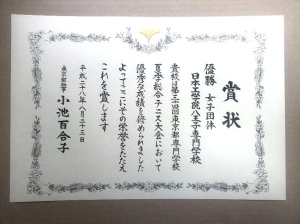 賞状
優勝 女子団体
日本工学院八王子専門学校
貴校は第二十四回東京都専門学校
夏季総合テニス大会において
優秀な成績を修められました
よってここにその栄誉をたたえ
これを賞します
平成二十八年八月二十三日
東京都知事 小池百合子